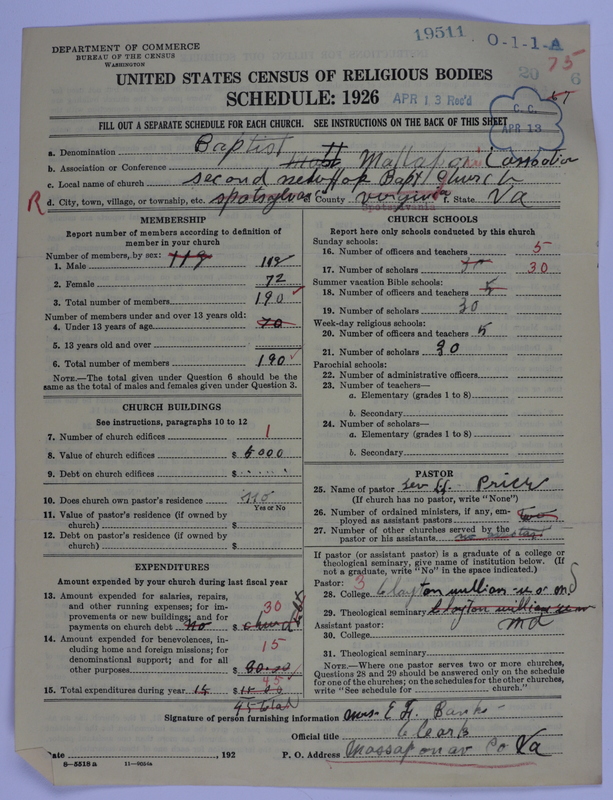 19511
O-1-1-A
75
20 6
DEPARTMENT OF COMMERCE
BUREAU OF THE CENSUS
WASHINGTON
UNITED STATES CENSUS OF RELIGIOUS BODIES
SCHEDULE: 1926
APR 13 Rec'd
C. C.
APR 13
FILL OUT A SEPARATE SCHEDULE FOR EACH CHURCH. SEE INSTRUCTIONS ON THE BACK OF THIS SHEET
a. Denomination Baptist
b. Association or Conference Mattaponi
c. Local name of church second Bapt Church
R d. City, town, village, or township, etc. e. County virginia f. State Va
Spotsylvania
MEMBERSHIP
Report number of members according to definition of
member in your church
Number of members, by sex: 119
1. Male 118
2. Female 72
3. Total number of members 190
Number of members under and over 13 years old:
4. Under 13 years of age 70
5. 13 years old and over
6. Total number of members 190
NOTE.—The total given under Question 6 should be the
same as the total of males and females given under Question 3.
CHURCH BUILDINGS
See instructions, paragraphs 10 to 12
7. Number of church edifices 1
8. Value of church edifices $ 5000
9. Debt on church edifices $
10. Does church own pastor's residence no
Yes or No
11. Value of pastor's residence (if owned by
church) $
12. Debt on pastor's residence (if owned by
church) $
EXPENDITURES
Amount expended by your church during last fiscal year
13. Amount expended for salaries, repairs,
and other running expenses; for im-
provements or new buildings; and for
payments on church debt $ 30
14. Amount expended for benevolences, in-
cluding home and foreign missions; for
denominational support; and for all
other purposes $ 15
15. Total expenditures during year 15 $ 45
45 total
CHURCH SCHOOLS
Report here only schools conducted by this church
Sunday schools:
16. Number of officers and teachers 5
17. Number of scholars 30
Summer vacation Bible schools:
18. Number of officers and teachers 5
19. Number of scholars 30
Week-day religious schools:
20. Number of officers and teachers 5
21. Number of scholars 30
Parochial schools:
22. Number of administrative officers
23. Number of teachers—
a. Elementary (grades 1 to 8)
b. Secondary
24. Number of scholars—
a. Elementary (grades 1 to 8)
b. Secondary
PASTOR
25. Name of pastor Price
(If church has no pastor, write "None")
26. Number of ordained ministers, if any, em-
ployed as assistant pastors
27. Number of other churches served by the
pastor or his assistants
If pastor (or assistant pastor) is a graduate of a college or
theological seminary, give name of institution below. (If
not a graduate, write "No" in the space indicated.)
Pastor: 3
28. College Clayton
29. Theological seminary Clayton
Assistant pastor: md
30. College
31. Theological seminary
NOTE.—Where one pastor serves two or more churches,
Questions 28 and 29 should be answered only on the schedule
for one of the churches; on the schedules for the other churches,
write "See schedule for church."
Signature of person furnishing information Mrs. E
Official title Clark
Date , 192 P. O. Address Massaponax Va
8—5518 a 11—9054a